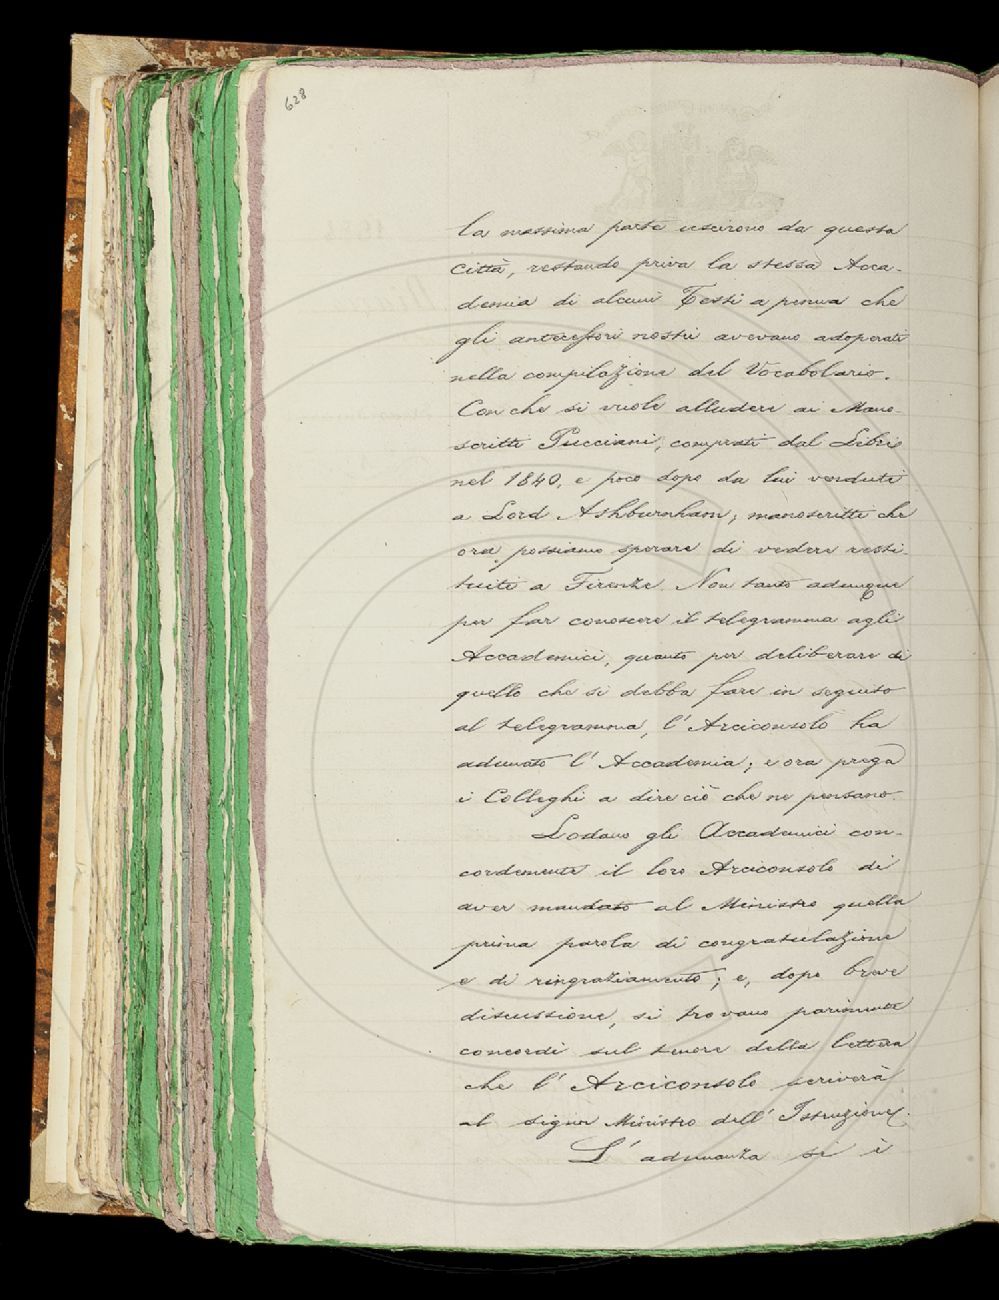 628
la massima parte uscirono da questa
città, restando priva la stessa Acca-
demia di alcuni Testi a penna che
gli antecessori nostri avevano adoperati
nella compilazione del Vocabolario.
Con che si vuole alludere ai Mano-
scritti Pucciani, comprati dal Libri
nel 1840, e poco dopo da lui venduti
a Lord Ashburnham; manoscritti che
ora possiamo sperare di vedere resti-
tuiti a Firenze. Non tanto adunque
per far conoscere il telegramma agli
Accademici, quanto per deliberare di
quello che si debba fare in seguito
al telegramma, l'Arciconsolo ha
adunato l'Accademia; e ora prega
i Colleghi a dire ciò che ne pensano.
Lodano gli Accademici con-
cordemente il loro Arciconsolo di
aver mandato al Ministro quella
prima parola di congratulazione
e di ringraziamento; e, dopo breve
discussione, si trovano parimente
concordi sul tenore della lettera
che l'Arciconsolo scriverà
al signor Ministro dell'Istruzione.
L'adunanza si è